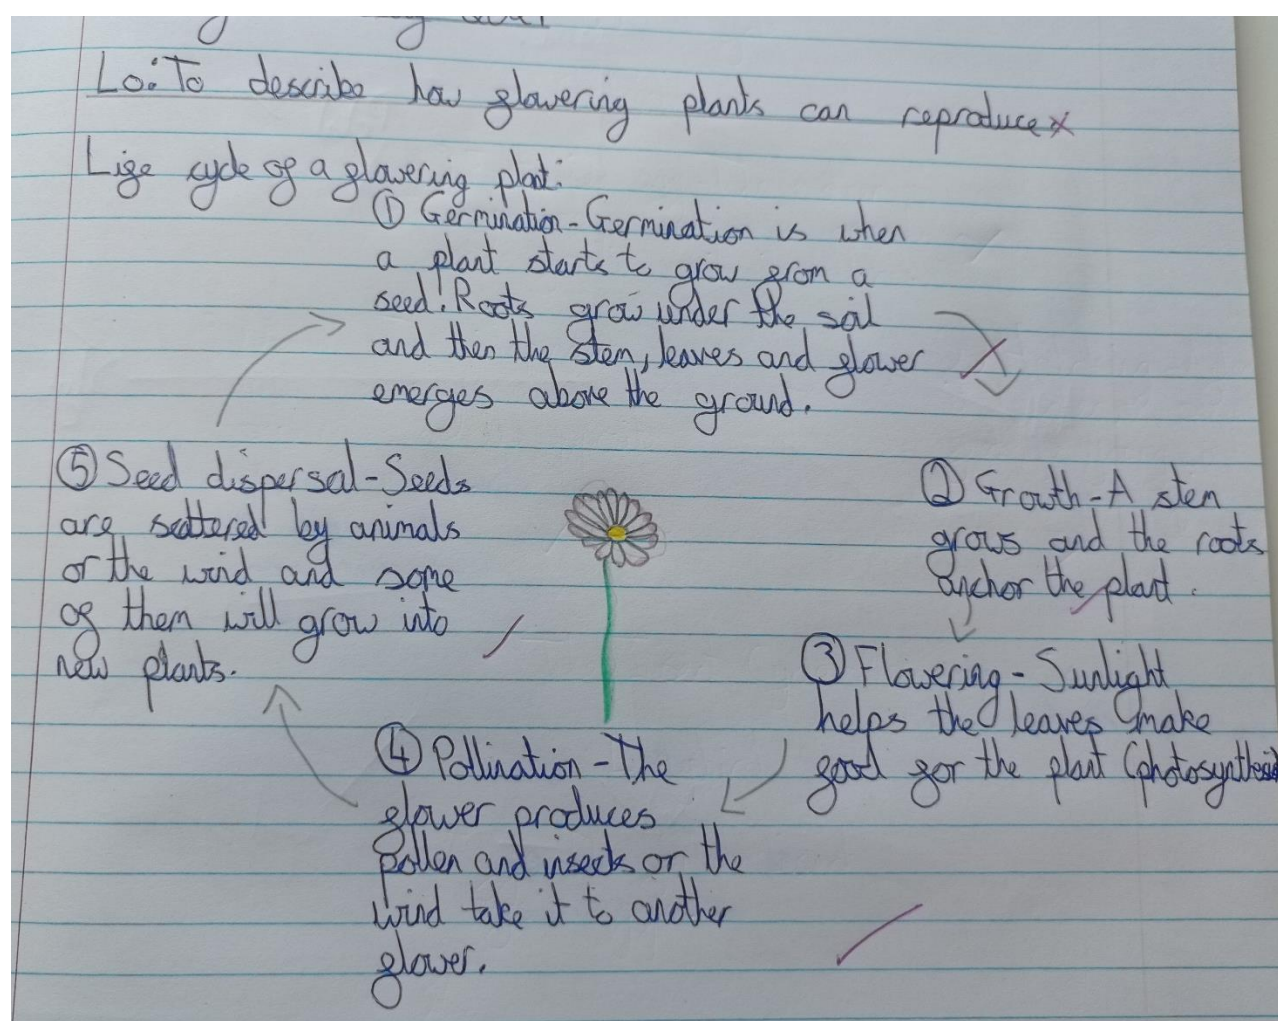 Lo: To describe how flowering plants can reproduce
Life cycle of a flowering plant:
① Germination - Germination is when
a plant starts to grow from a
seed. Roots grow under the soil
and then the stem, leaves and flower
emerges above the ground.
② Growth - A stem
grows and the roots
anchor the plant.
③ Flowering - Sunlight
helps the leaves make
food for the plant (photosynthesis)
④ Pollination - The
flower produces
pollen and insects or the
wind take it to another
flower.
⑤ Seed dispersal - Seeds
are scattered by animals
or the wind and some
of them will grow into
new plants.